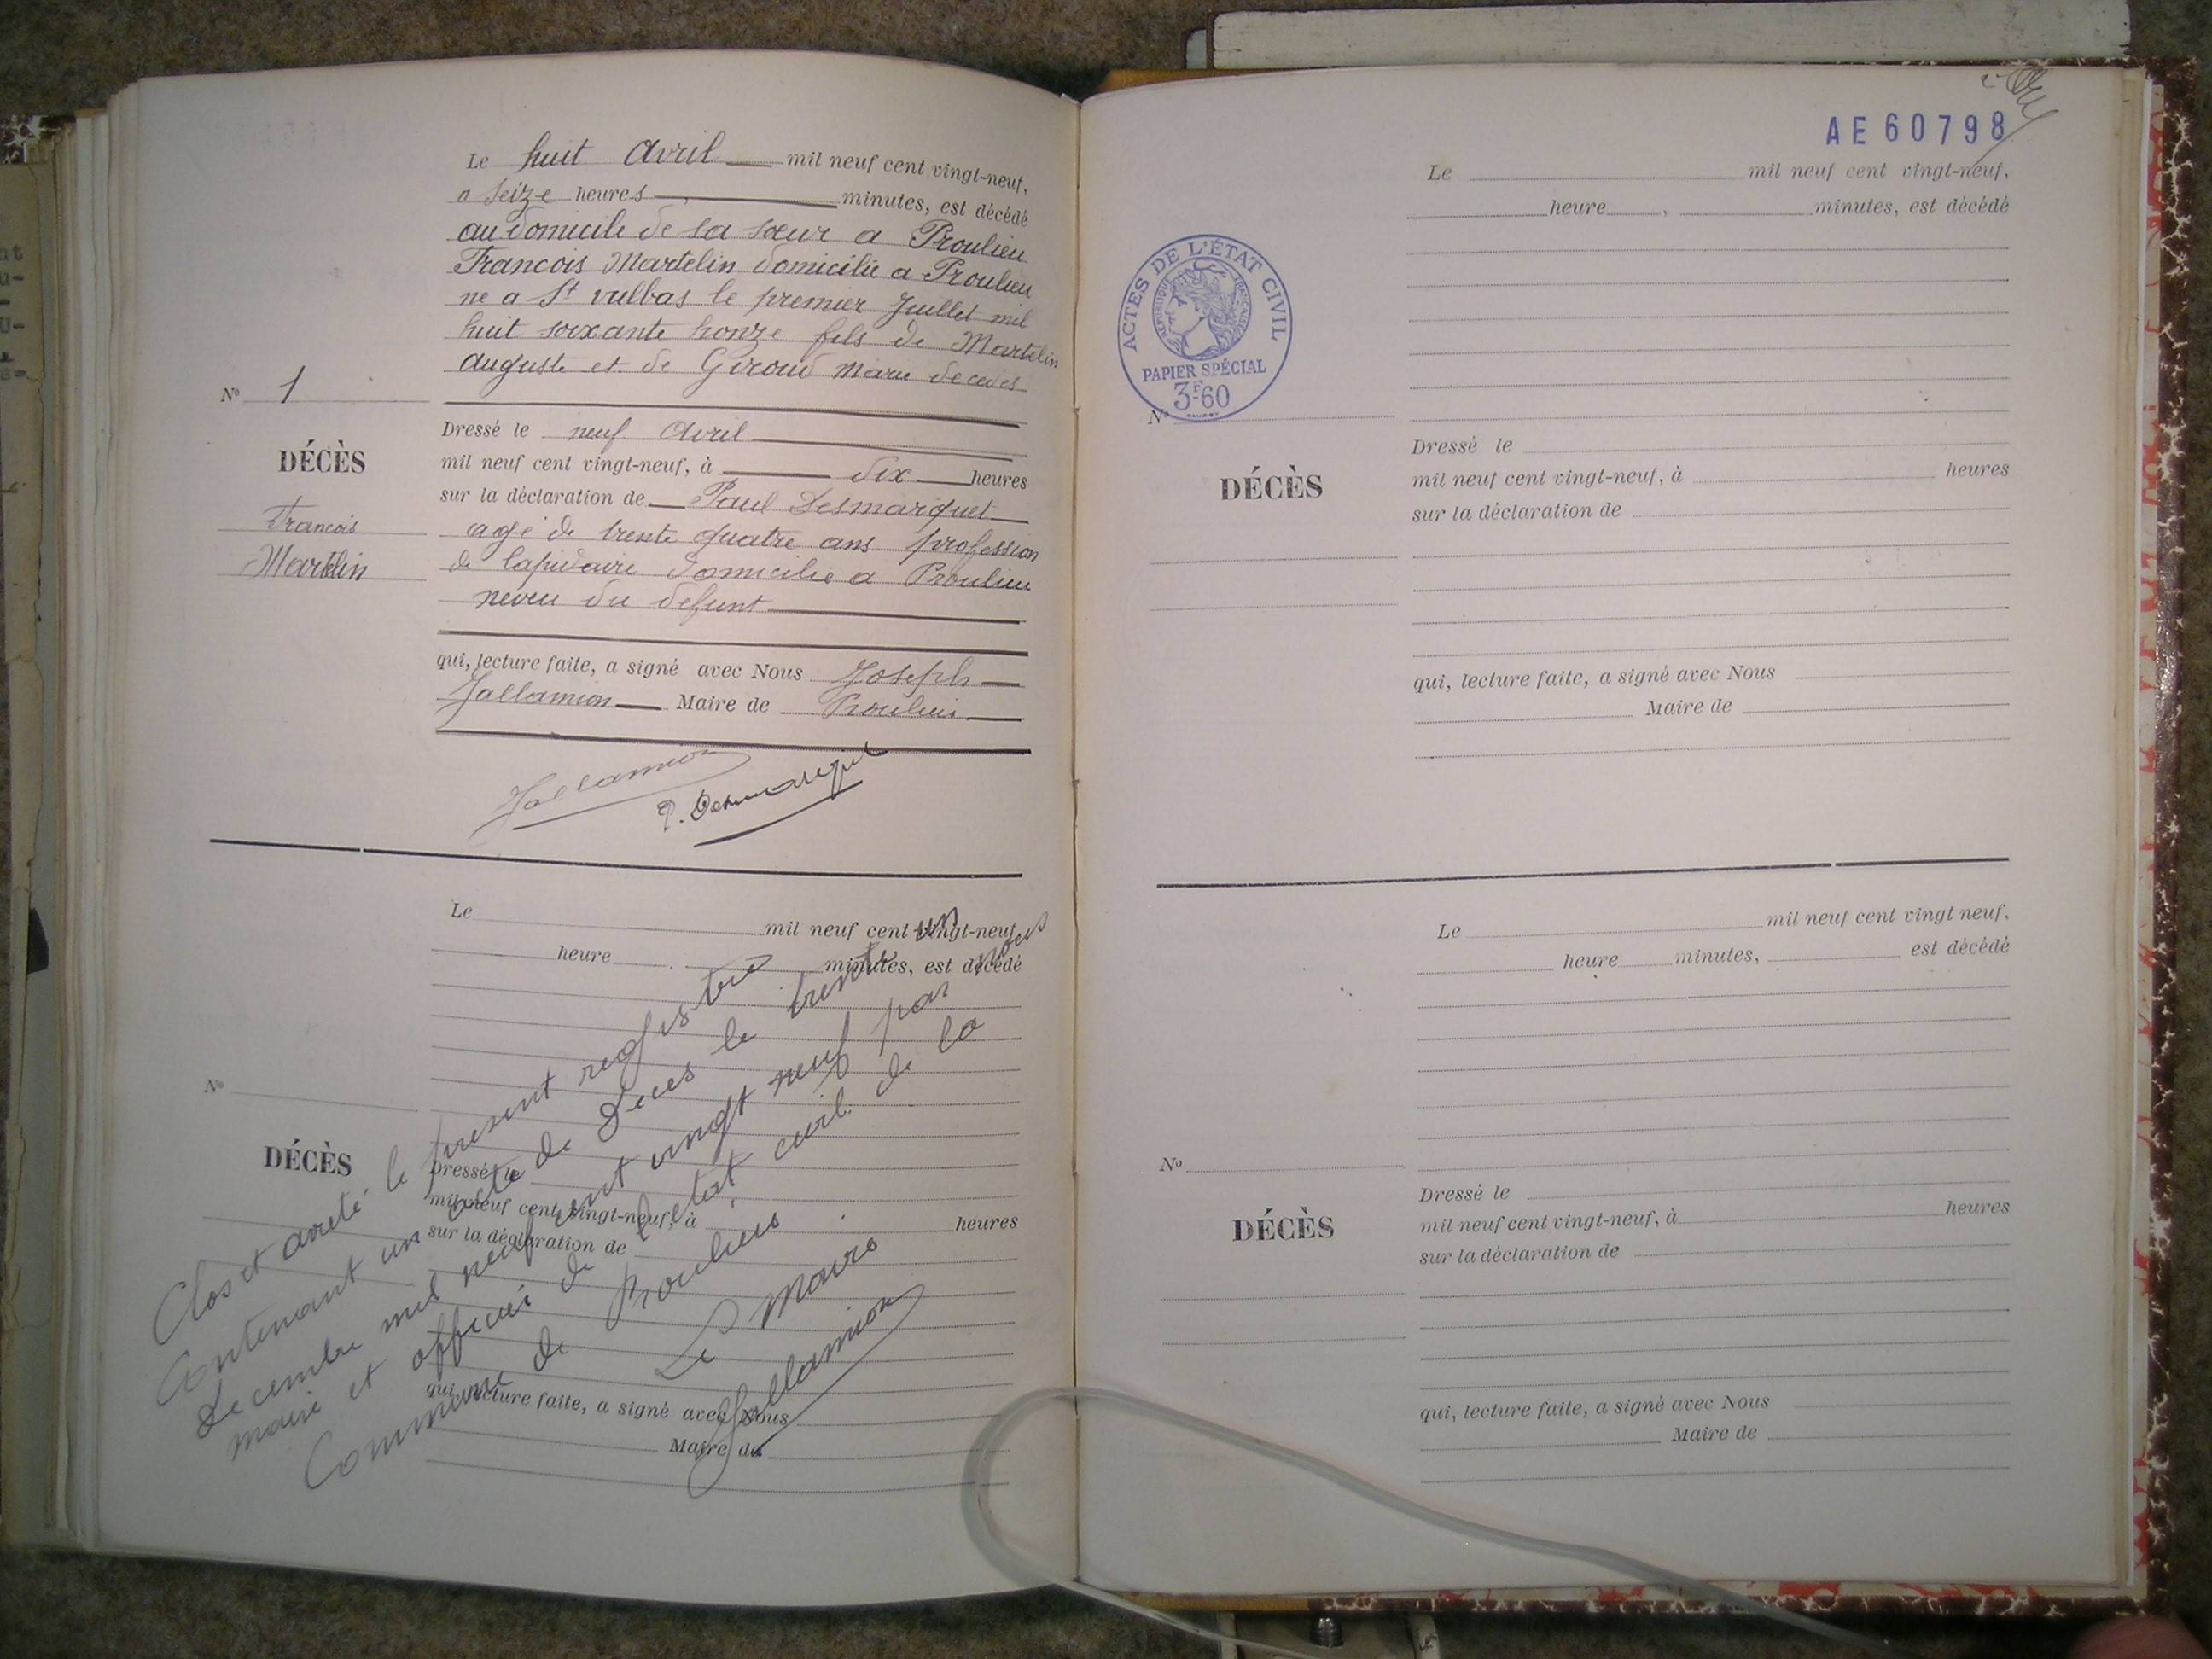 Le huit Avril mil neuf cent vingt-neuf,
a seize heures minutes, est décédé
au domicile de sa sœur a Proulieu
Francois Martelin domicilié a Proulieu
ne a St vulbas le premier Juillet mil
huit soixante honze fils de Martelin
auguste et de Giroud Marie decedes
N° 1
DÉCÈS
Francois
Martelin
Dressé le neuf Avril
mil neuf cent vingt-neuf, à dix heures
sur la déclaration de Paul Desmarquet
agé de trente quatre ans profession
de lapidaire domicilie a Proulieu
neveu du defunt
qui, lecture faite, a signé avec Nous Joseph
Jallamion Maire de Proulieu
Jallamion
P. Desmarquet
Le mil neuf cent vingt-neuf,
heure minutes, est décédé
N°
DÉCÈS
Dressé le
mil neuf cent vingt-neuf, à heures
sur la déclaration de
qui, lecture faite, a signé avec Nous
Maire de
Clos et arreté le present registre
Contenant un acte de Deces le trente un
Decembre mil neuf cent vingt neuf par nous
maire et officier de l'etat civil de la
Commune de Proulieu
Le Maire
Jallamion
AE 60798
ACTES DE L'ÉTAT CIVIL
RÉPUBLIQUE FRANÇAISE
PAPIER SPÉCIAL
3F60
Le mil neuf cent vingt-neuf,
heure , minutes, est décédé
N°
DÉCÈS
Dressé le
mil neuf cent vingt-neuf, à heures
sur la déclaration de
qui, lecture faite, a signé avec Nous
Maire de
Le mil neuf cent vingt neuf,
heure minutes, est décédé
N°
DÉCÈS
Dressé le
mil neuf cent vingt-neuf, à heures
sur la déclaration de
qui, lecture faite, a signé avec Nous
Maire de